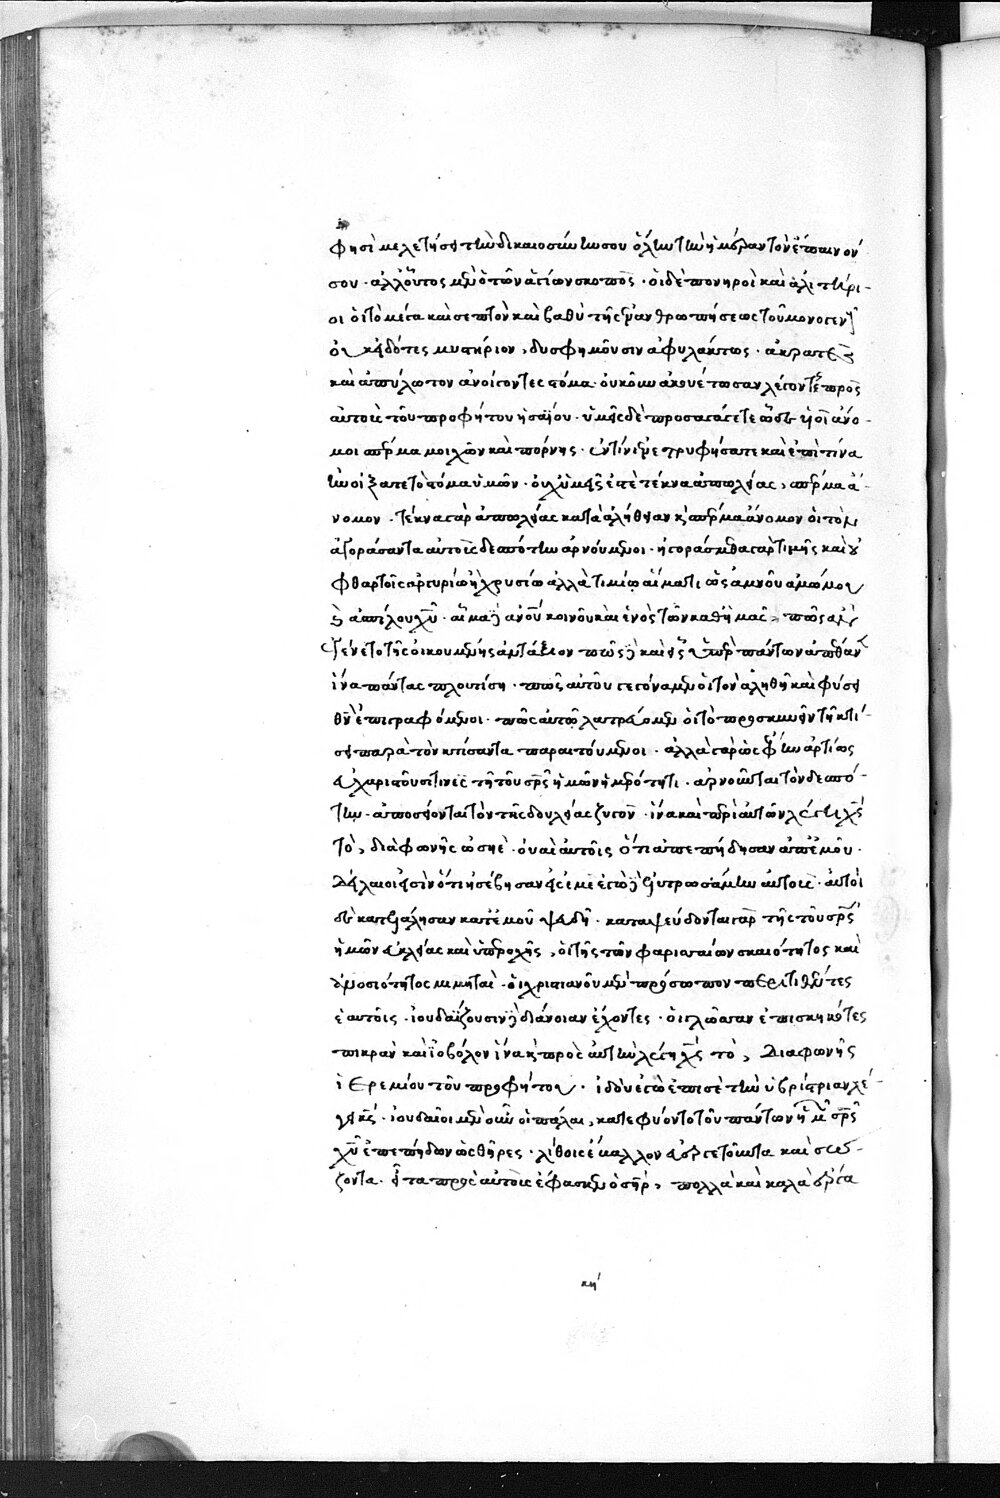 φησὶ μελετήσει τὴν δικαιοσύνην σου ὅλην τὴν ἡμέραν τὸν ἔπαινόν
σου· ἀλλ' οὗτος μὲν ὁ τῶν ἁγίων σκοπός· οἱ δὲ πονηροὶ καὶ ἀλιτήρι-
οι οἱ τὸ μέγα καὶ σεπτὸν καὶ βαθὺ τῆς ἐνανθρωπήσεως τοῦ μονογενῆ
οὐκ εἰδότες μυστήριον, δυσφημοῦσιν ἀφυλάκτως· ἀκρατὲς
καὶ ἀπύλωτον ἀνοίγοντες στόμα· οὐκοῦν ἀκουέτωσαν λέγοντος πρὸς
αὐτοὺς τοῦ προφήτου ἠσαΐου· ὑμεῖς δὲ προσαγάγετε ὧδε υἱοὶ ἄνο-
μοι σπέρμα μοιχῶν καὶ πόρνης· ἐν τίνι ἐνετρυφήσατε καὶ ἐπὶ τίνα
ἠνοίξατε τὸ στόμα ὑμῶν· οὐχ ὑμεῖς ἐστὲ τέκνα ἀπωλείας, σπέρμα ἄ-
νομον· τέκνα γὰρ ἀπωλείας κατὰ ἀλήθειαν καὶ σπέρμα ἄνομον οἱ τὸν
ἀγοράσαντα αὐτοὺς δεσπότην ἀρνούμενοι· ἠγοράσμεθα γὰρ τιμῆς καὶ οὐ
φθαρτοῖς ἀργυρίω ἢ χρυσίω ἀλλὰ τιμίω αἵματι ὡς ἀμνοῦ ἀμώμου
καὶ ἀσπίλου χῦ· αἷμα δὲ ἀνοῦ κοινοῦ καὶ ἑνὸς τῶν καθ' ἡμᾶς, πῶς ἂν
γένετο τῆς οἰκουμένης ἀντάξιον πῶς δὲ καὶ εἷς ὑπὲρ πάντων ἀπέθανεν
ἵνα πάντας πλουτίση· πῶς αὐτοῦ γεγόναμεν οἱ τὸν ἀληθῆ καὶ φύσει
θν ἐπιγραφόμενοι· πῶς αὐτῶ λατρεύομεν οἱ τὸ προσκυνεῖν τῆ κτί-
σει παρὰ τὸν κτίσαντα παραιτούμενοι· ἀλλὰ γὰρ ὡς ἔφην ἀρτίως
δυσχεριστοῦσί τινες τῆ τοῦ σρς ἡμῶν ἡμερότητι· ἀρνοῦνται τὸν δεσπό-
την· ἀποσείονται τὸν τῆς δουλείας ζυγόν· ἵνα καὶ περὶ αὐτῶν λέγη χς
τὸ, διὰ φωνῆς ὡσηὲ· οὐαὶ αὐτοῖς ὅτι ἀπεπήδησαν ἀπ' ἐμοῦ·
δείλαιοί εἰσιν ὅτι ἠσέβησαν εἰς ἐμὲ ἐγὼ δὲ ἐλυτρωσάμην αὐτοὺς· αὐτοὶ
δὲ κατελάλησαν κατ' ἐμοῦ ψευδῆ· καταψεύδονται γὰρ τῆς τοῦ σρς
ἡμῶν εὐκλείας καὶ ὑπεροχῆς, οἱ τῆς τῶν φαρισαίων σκαιότητος καὶ
ἀνοσιότητος μιμηταὶ· οἱ χριστιανοῦ μὲν πρόσωπον περιτιθέντες
ἑαυτοῖς· ἰουδαΐζουσαν δὲ διάνοιαν ἔχοντες· οἱ γλῶσσαν ἐπισκηκότες
πικρὰν καὶ ἰοβόλον ἵνα καὶ πρὸς αὐτὴν λέγη χς τὸ, διὰ φωνῆς
ἱερεμίου τοῦ προφήτου· ἰδοὺ ἐγὼ ἐπὶ σὲ τὴν ὑβρίστριαν λέ-
γει κς· ἰουδαῖοι μὲν οὖν οἱ πάλαι, κατεφύοντο τοῦ πάντων ἡμῶν σρς
χῦ ἐπεπήδων ὡς θῆρες· λίθοις ἔβαλλον εὐεργετοῦντα καὶ σώ-
ζοντα· εἶτα πρὸς αὐτοὺς ἔφασκεν ὁ σηρ, πολλὰ καὶ καλὰ ἔργα
κη'